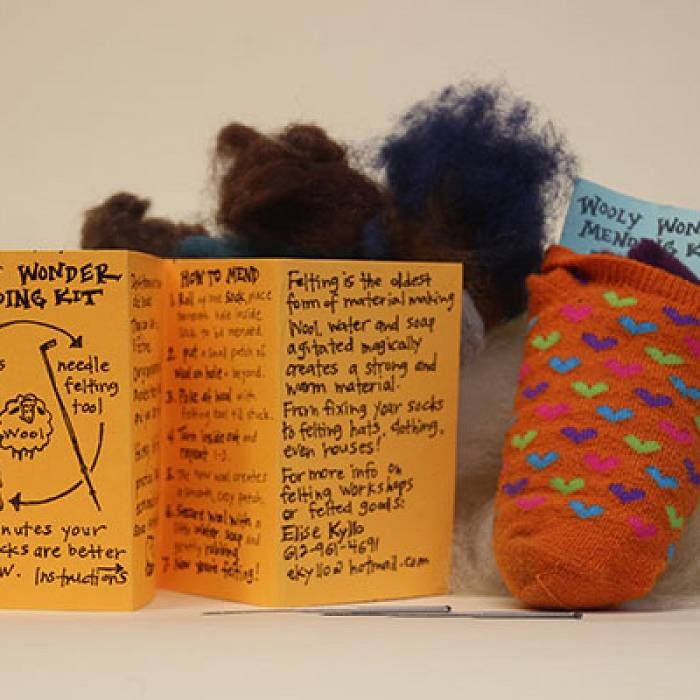 WONDER
DING KIT
needle
felting
tool
Wool
nutes your
cks are better
W. Instructions
HOW TO MEND
1. Roll up one sock, place
2. put a small patch of
wool on hole + beyond.
3. Poke at wool with
felting tool til stuck.
4. Turn inside out and
repeat 1-3.
5. The new wool creates
a smooth, cozy patch.
6. Secure wool with a
little water, soap and
gently rubbing.
7. Now you're felting!
Felting is the oldest
form of material making
Wool, water and soap
agitated magically
creates a strong and
warm material.
From fixing your socks
to felting hats, clothing,
even houses!
For more info on
felting workshops
or felted goods:
Elise Kyllo
612-961-4691
ekyllo@hotmail.com
WOOLY WON
MENDING K